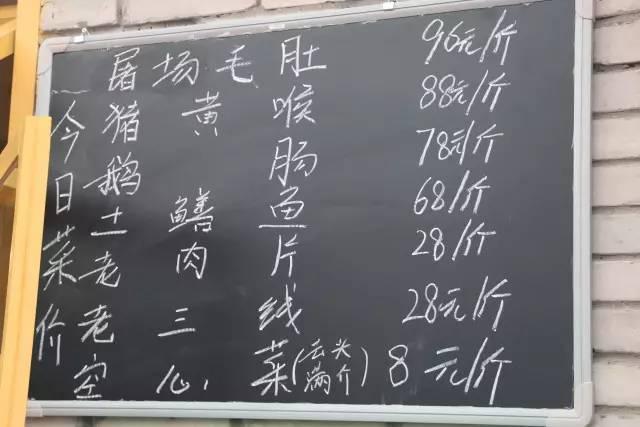 今日菜价
屠场毛肚 96元/斤
猪黄喉 88元/斤
鹅肠 78元/斤
土鳝鱼 68/斤
老肉片 28/斤
老三线 28元/斤
空心菜(去头满斤) 8元/斤